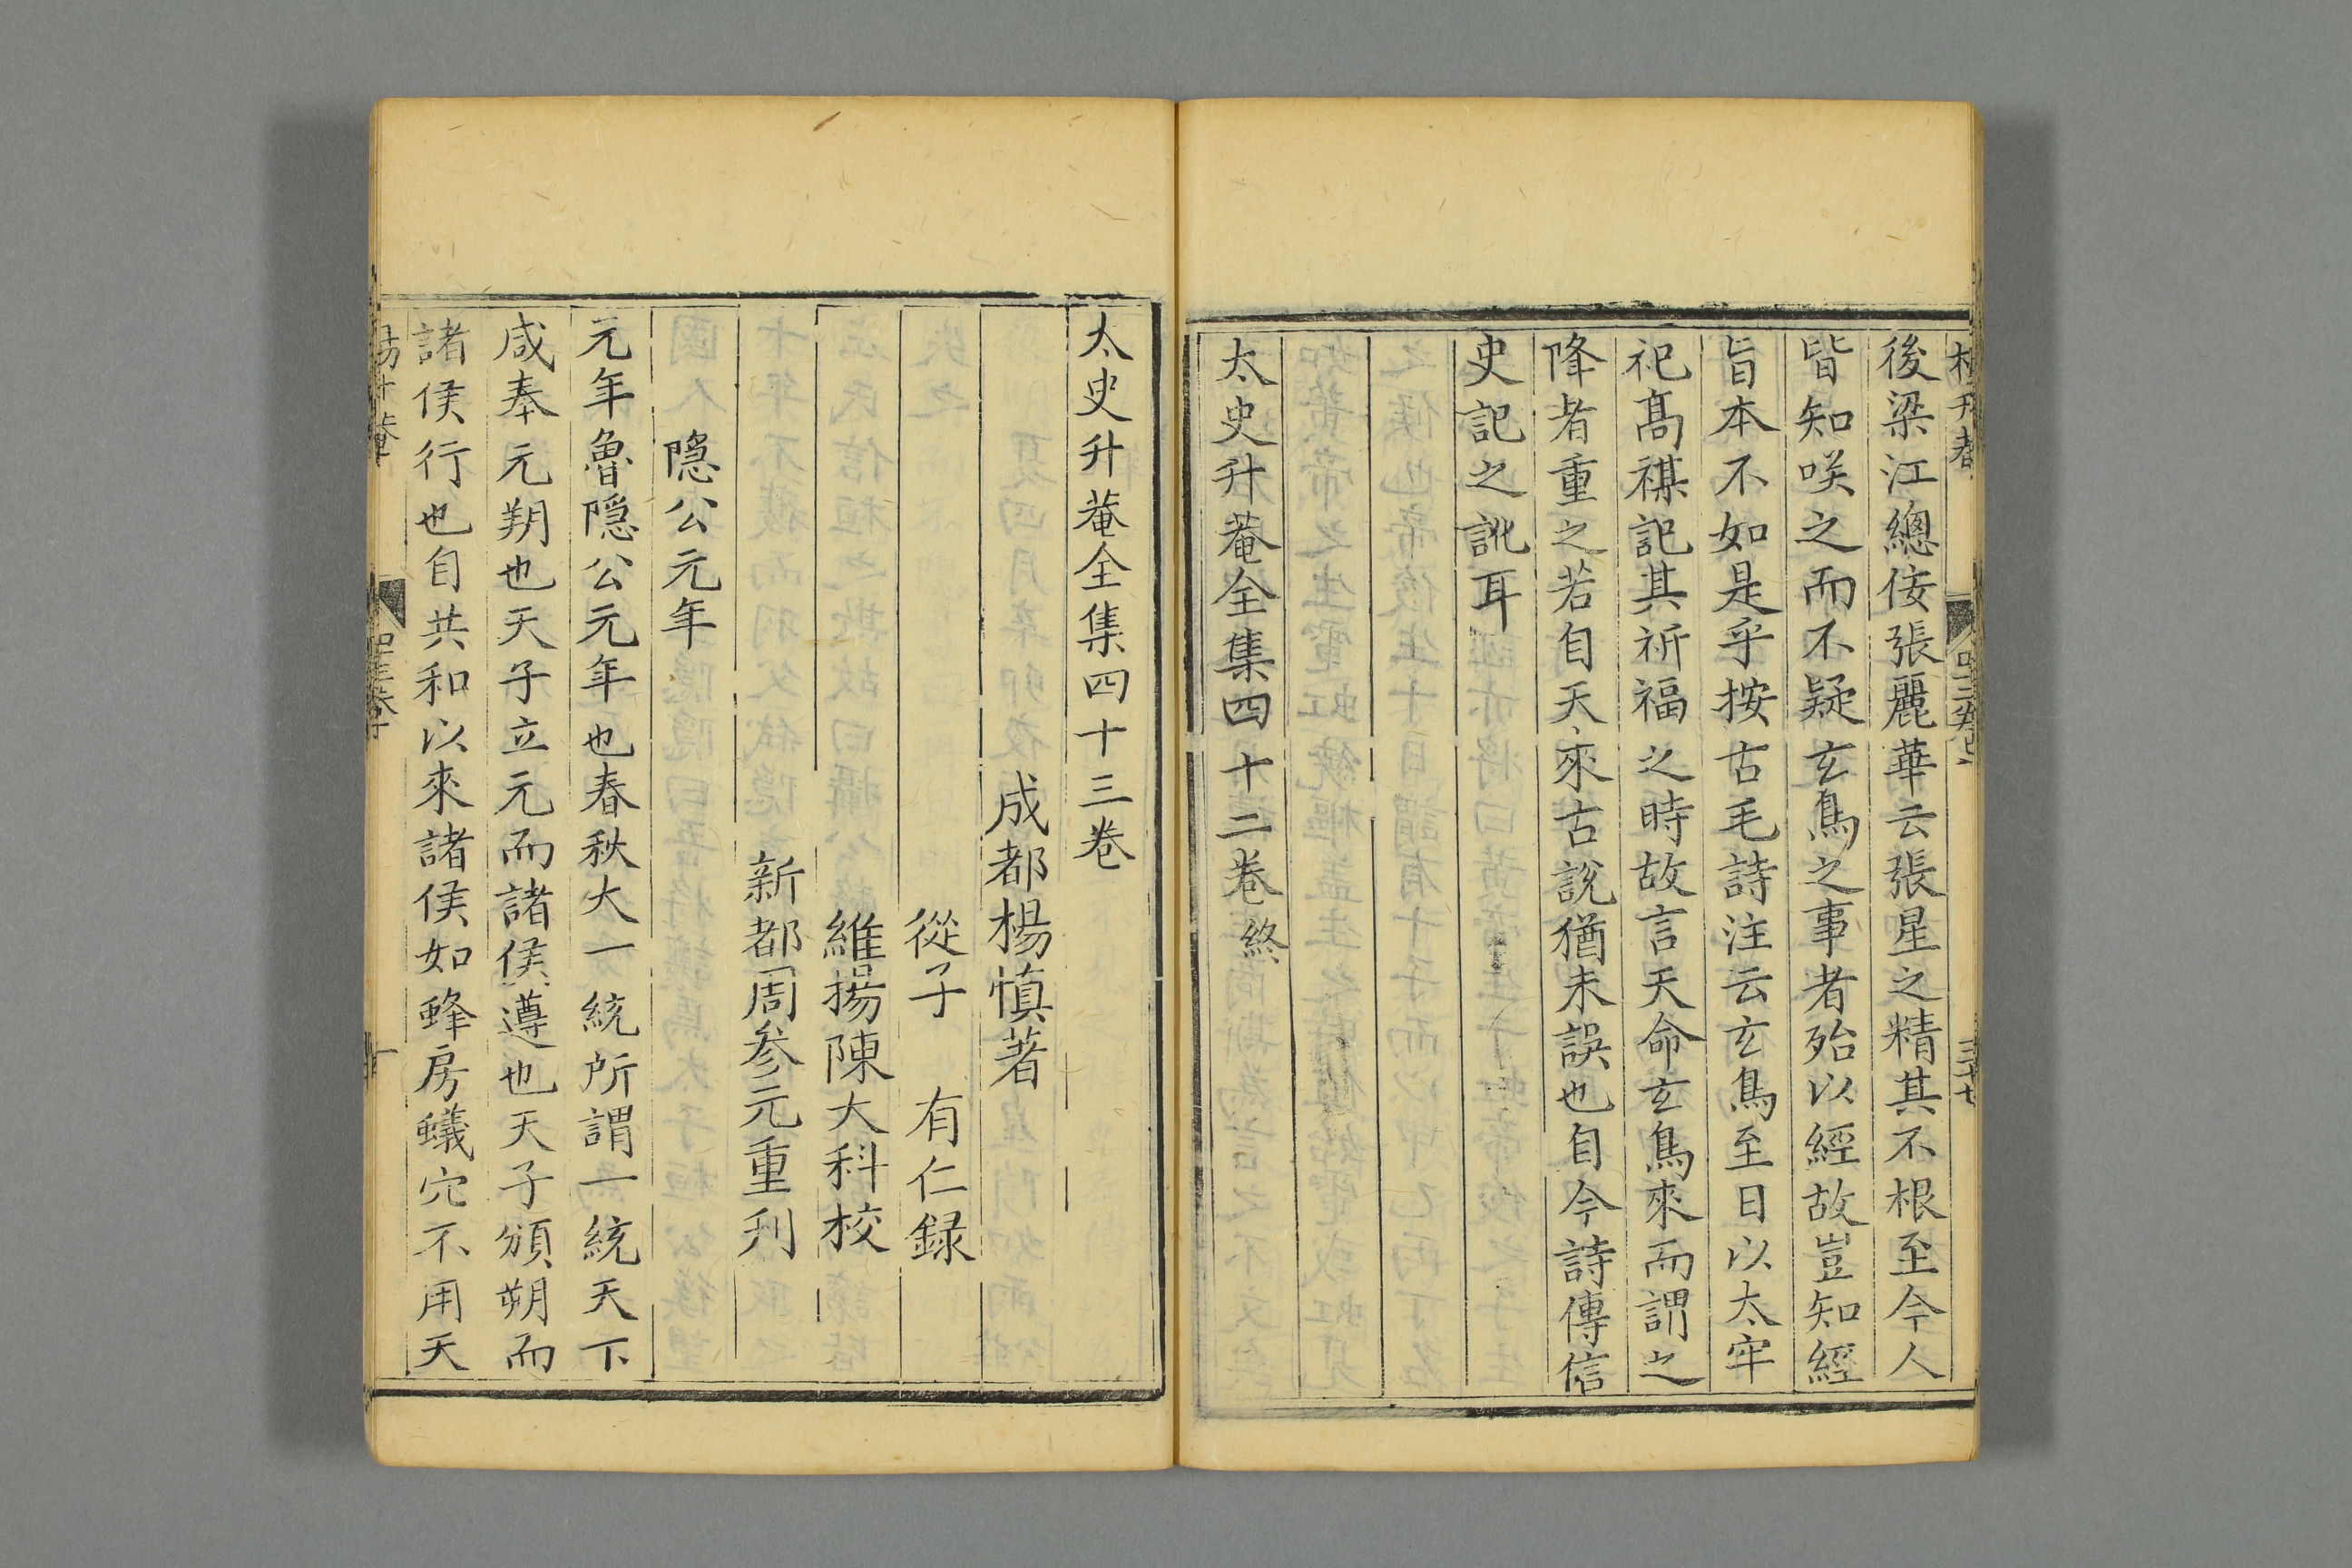 後梁江總佞張麗華云張星之精其不根至今人
皆知咲之而不疑玄鳥之事者殆以經故豈知經
旨本不如是乎按古毛詩注云玄鳥至日以太牢
祀髙禖記其祈福之時故言天命玄鳥來而謂之
降者重之若自天來古說猶未誤也自今詩傳信
史記之訛耳
太史升菴全集四十二巻終
太史升菴全集四十三巻
成都楊慎著
從子 有仁録
維揚陳大科校
新都周参元重刋
隱公元年
元年魯隱公元年也春秋大一統所謂一統天下
咸奉元朔也天子立元而諸侯遵也天子頒朔而
諸侯行也自共和以來諸侯如蜂房蟻穴不用天